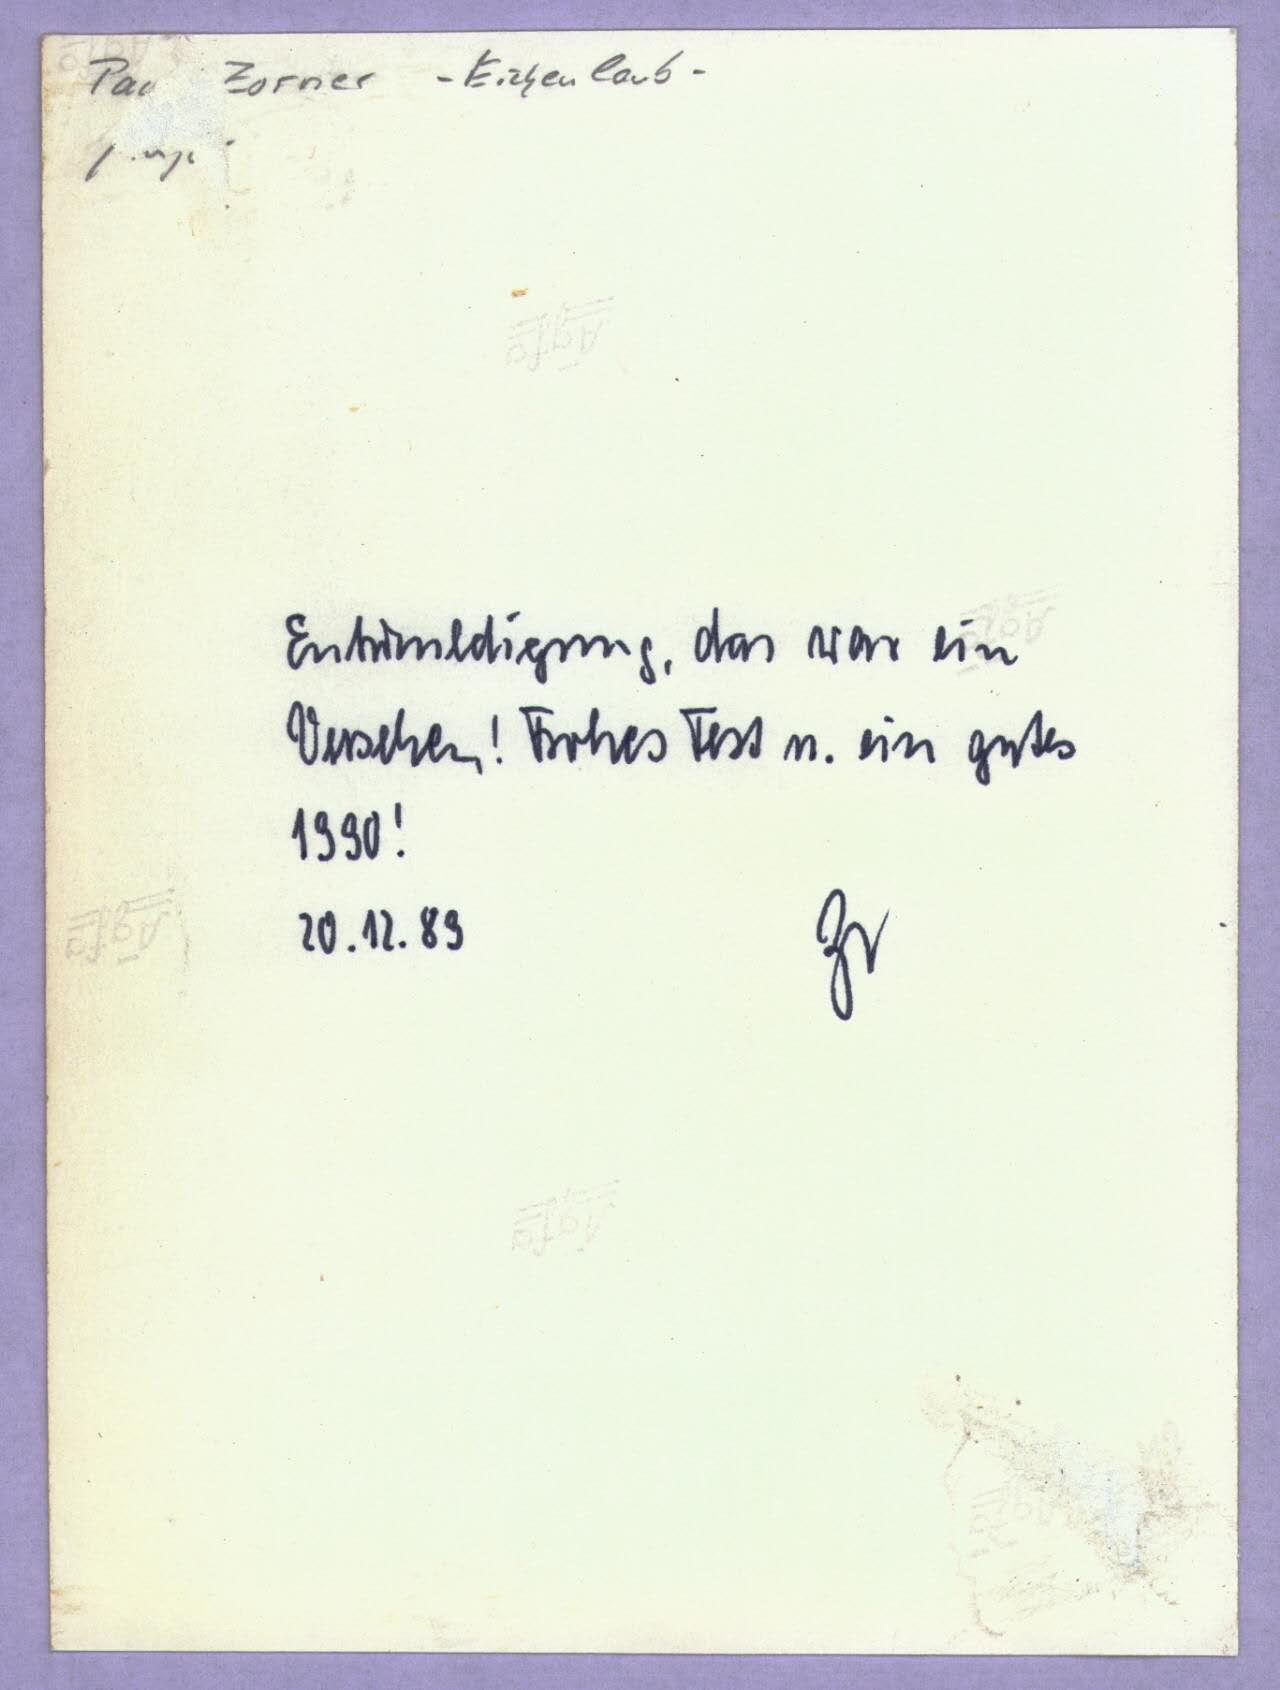 Zorner - Eichenlaub -
Entschuldigung, das war ein
Versehen! Frohes Fest u. ein gutes
1990!
20.12.89 Zr
Agfa
Agfa
Agfa
Agfa